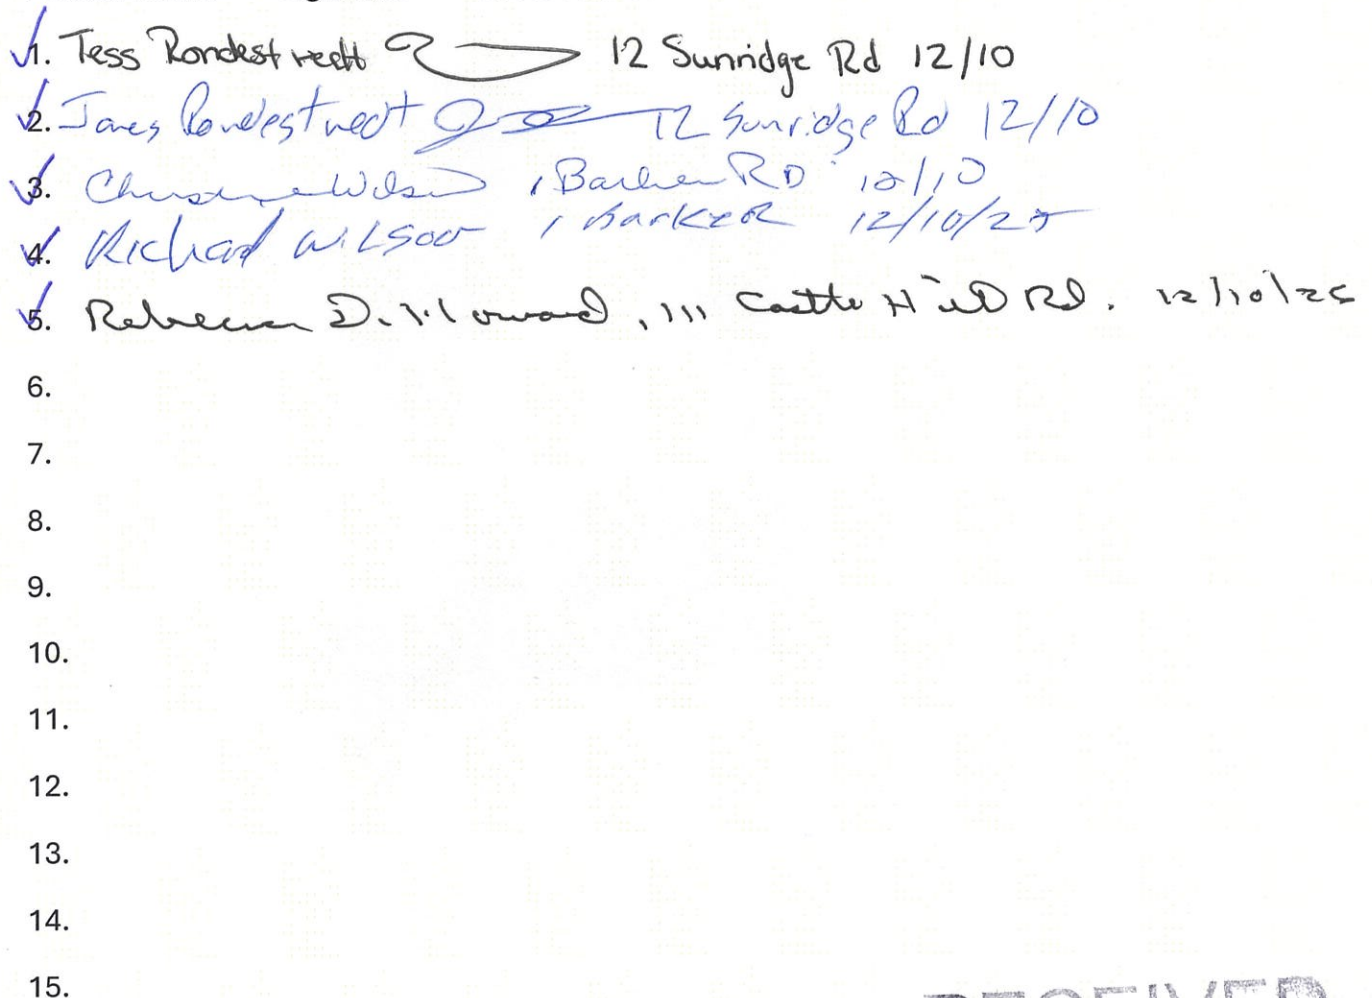 1. Tess Rondestvedt 12 Sunridge Rd 12/10
2. James Rondestvedt 12 Sunridge Rd 12/10
3. Wilson 1 Barker RD 12/10
4. Richard Wilson 1 Barker 12/10/25
5. Rebecca D. Howard, 111 Castle Hill Rd. 12/10/25
6.
7.
8.
9.
10.
11.
12.
13.
14.
15.
RECEIVED